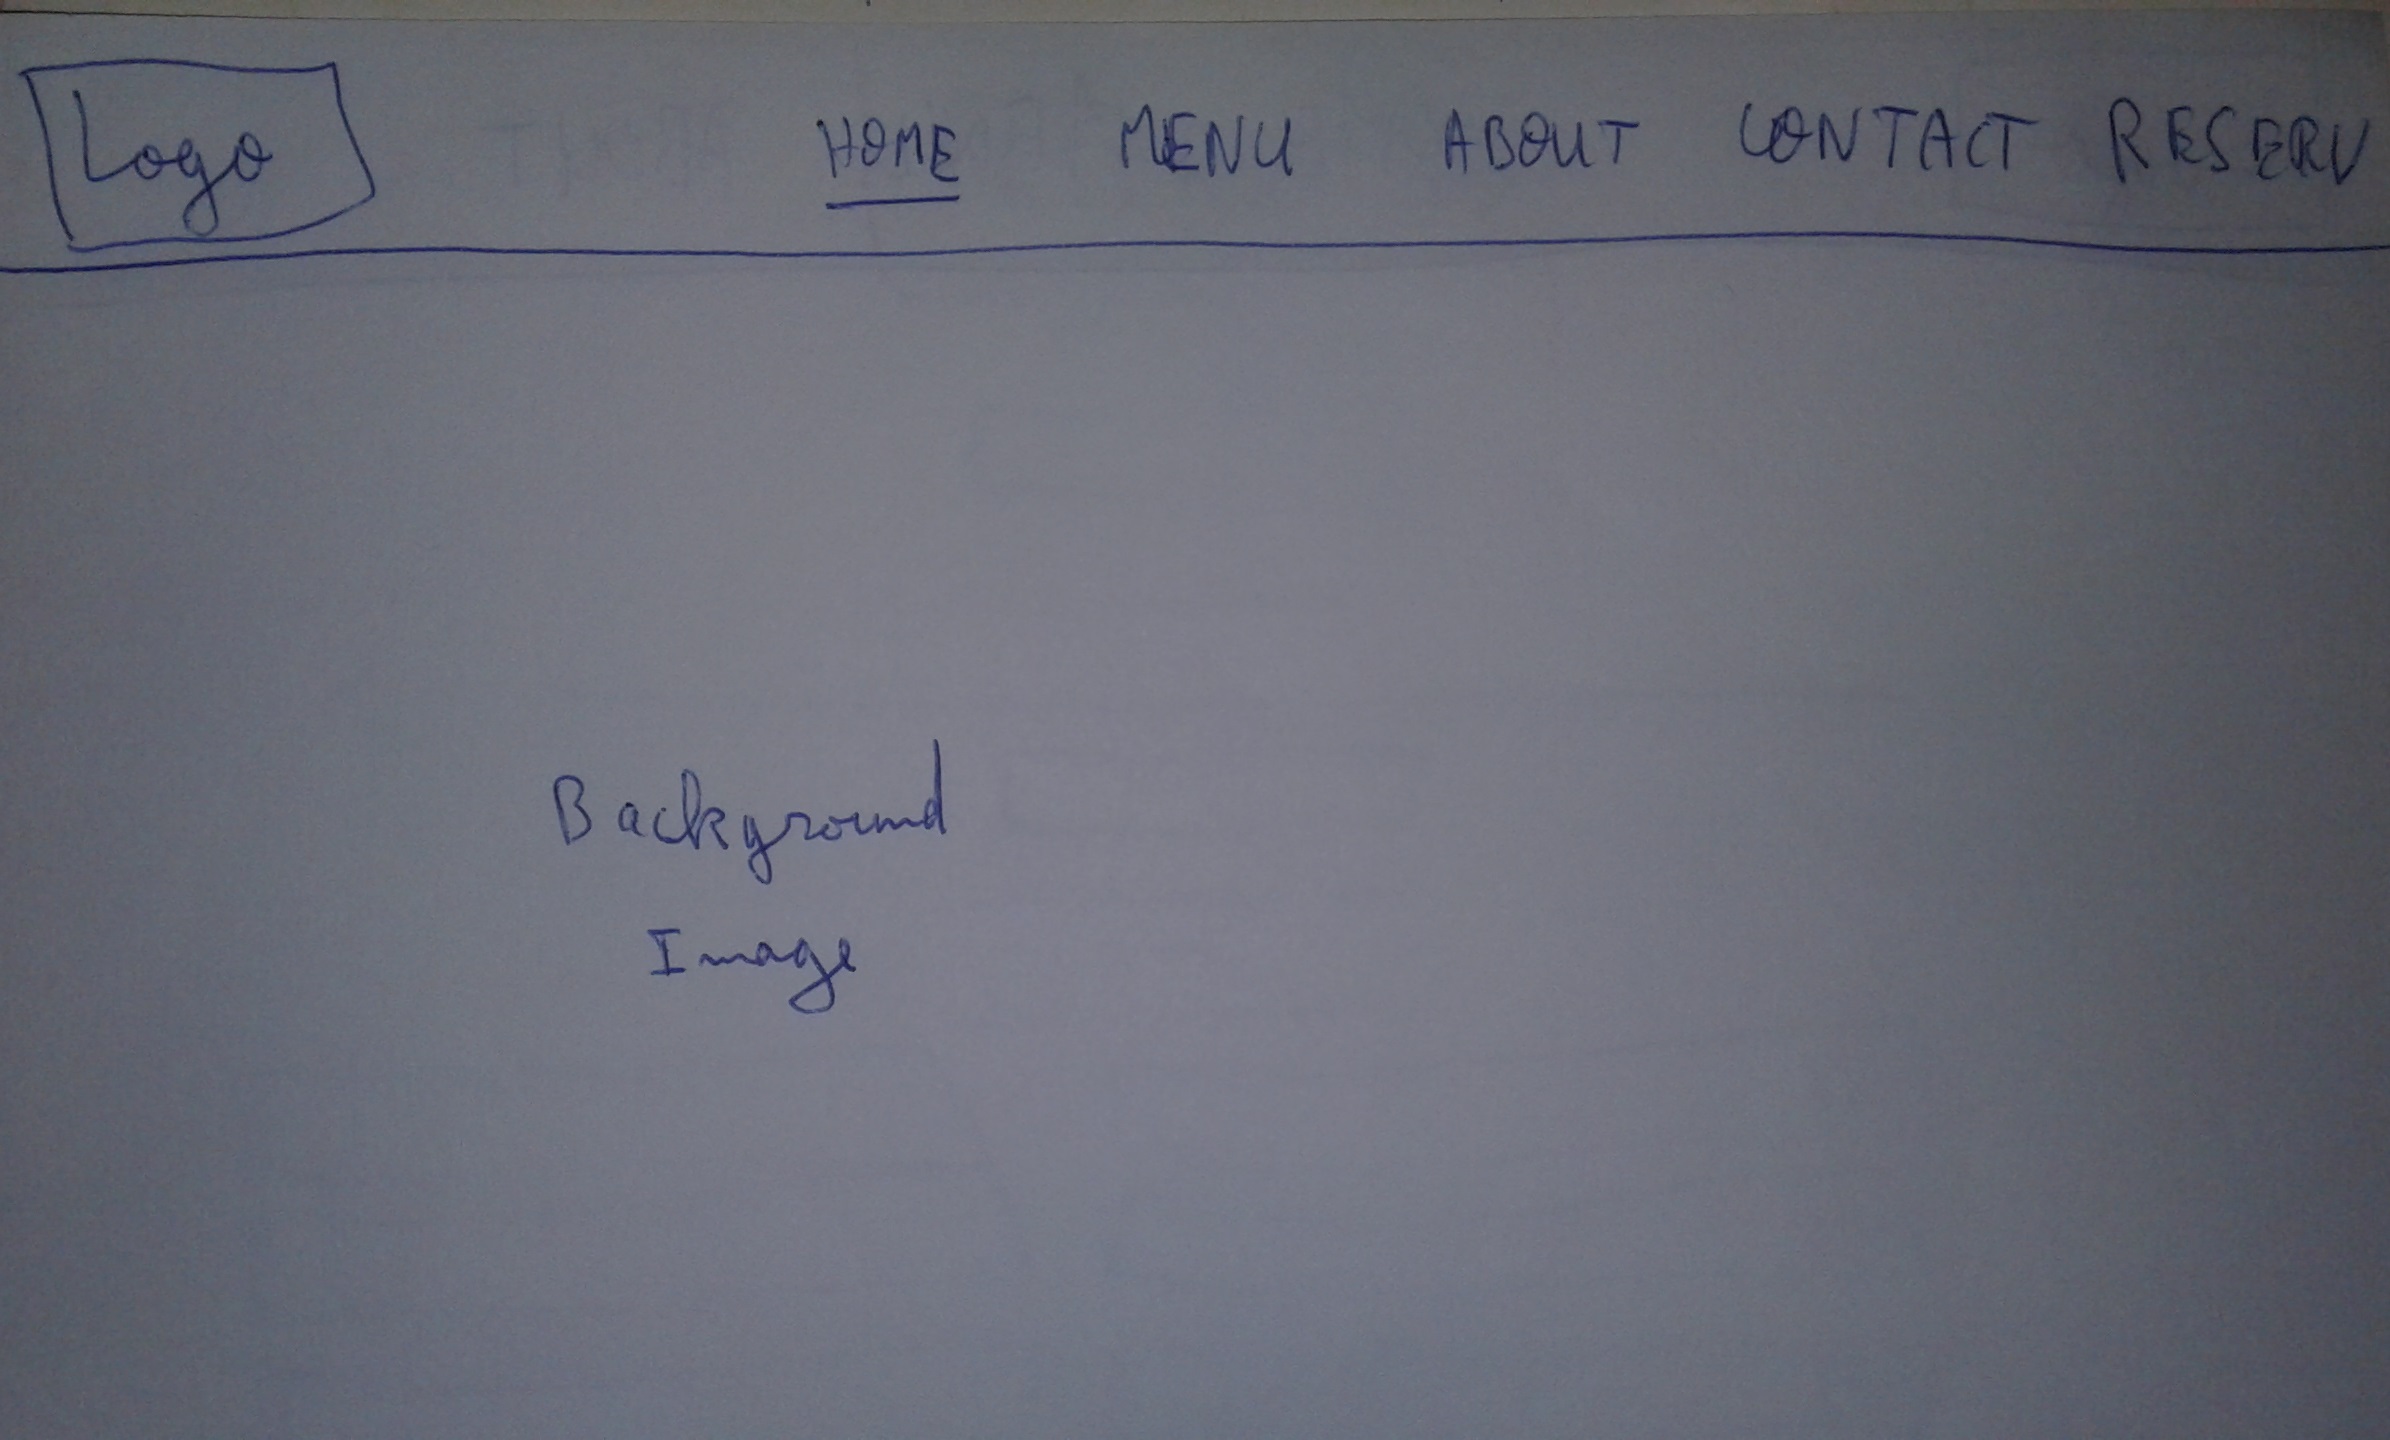 Logo HOME MENU ABOUT CONTACT RESERV
Background
Image